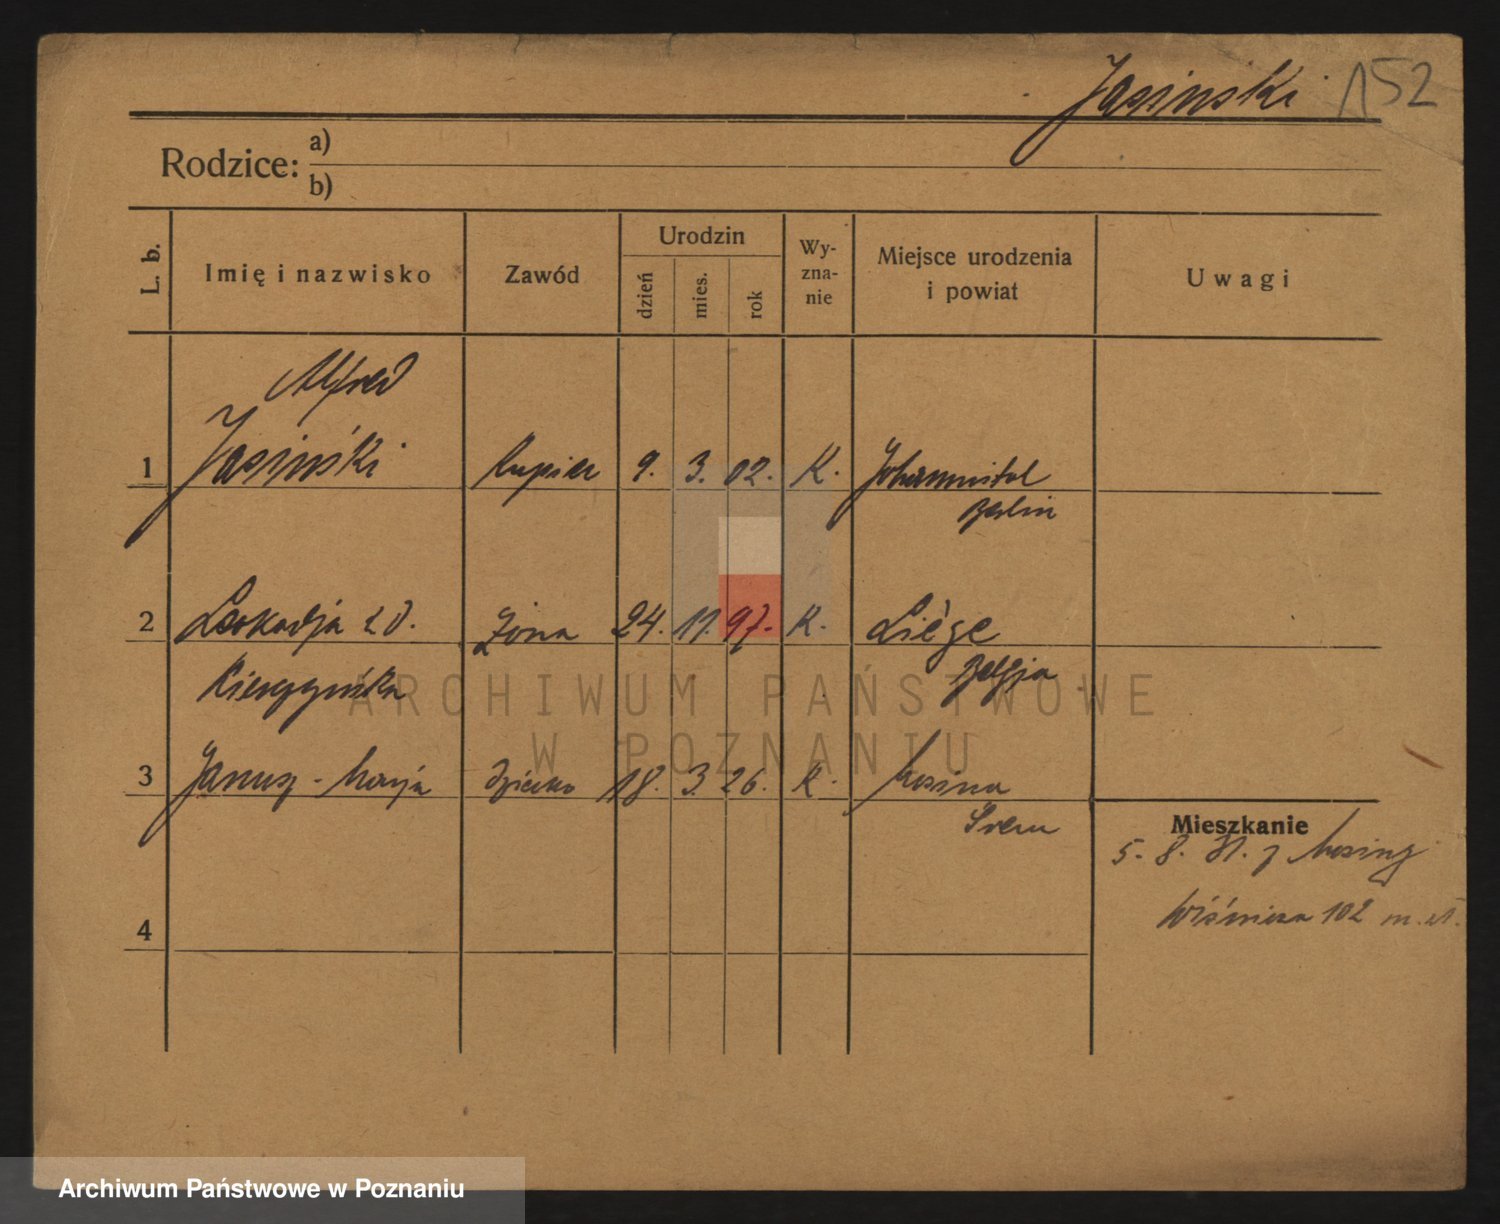 Jasinski 152
Rodzice: a)
b)
L. b. Imię i nazwisko Zawód Urodzin dzień mies. rok Wy-zna-nie Miejsce urodzenia i powiat Uwagi
Alfred
1 Jasiński Kupiec 9. 3. 02. K. Johannistal
Berlin
2 Leokadja z d. Żona 24. 11. 97. K. Liège
Belgja
ARCHIWUM PAŃSTWOWE
W POZNANIU
3 Janusz-Marja dziecko 18. 3. 26. K. Mosina
Śrem
Mieszkanie
5. 8. 31. z Mosiny
102
4
Archiwum Państwowe w Poznaniu